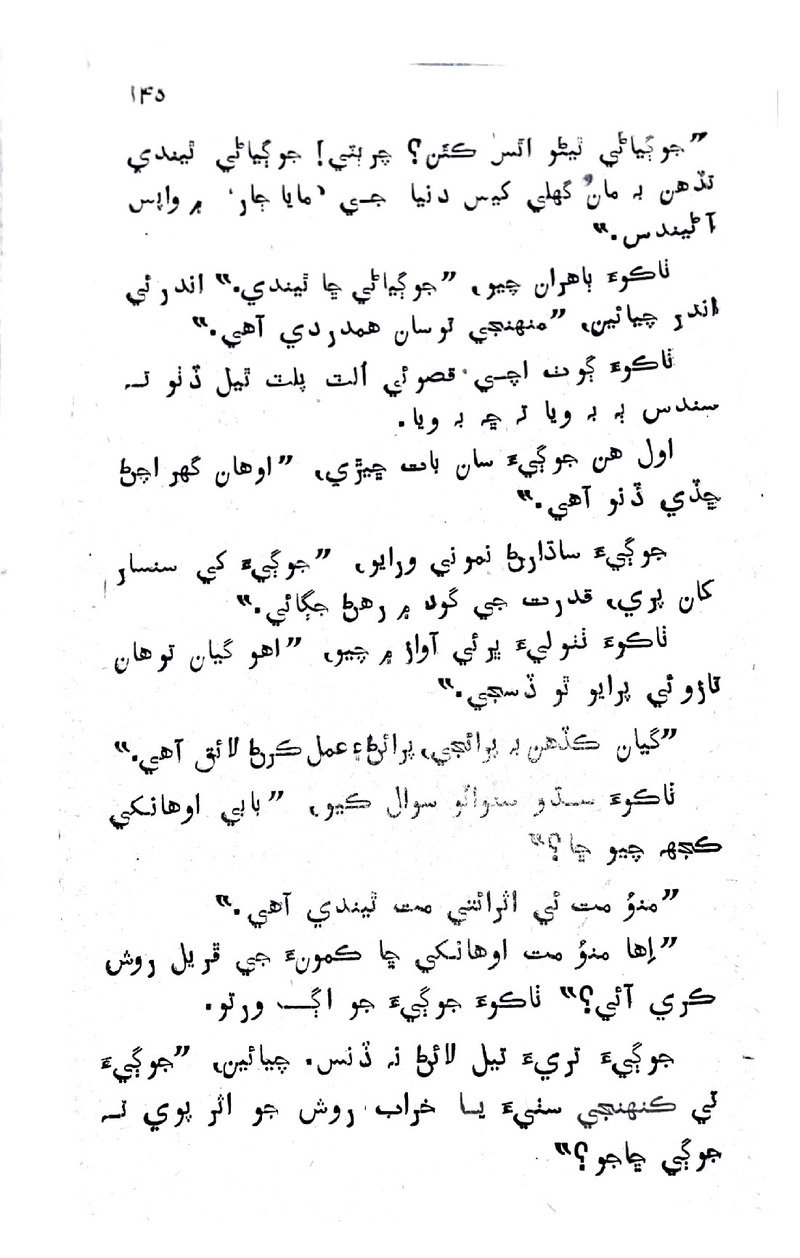 ۱۴۵
”جوڳياڻي ٿيڻو اٿس ڪٿن؟ چر ٻٽي! جوڳياڻي ٿيندي
تڏهن بہ مان گهلي کيس دنيا جي ’مايا ڄار‘ ۾ واپس
آڻيندس.“
ناڪوءَ ٻاهران چيو، ”جوڳياڻي ڇا ٿيندي.“ اندر ئي
اندر چيائين، ”منهنجي توسان همدردي آهي.“
ناڪوءَ ڳوٺ اچي قصو ئي اُلٽ پلٽ ٿيل ڏٺو تہ
سندس ٻہ بہ ويا تہ ڇہ بہ ويا.
اول هن جوڳيءَ سان بات ڇيڙي، ”اوهان گهر اچڻ
ڇڏي ڏنو آهي.“
جوڳيءَ ساڌارڻ نموني ورايو، ”جوڳيءَ کي سنسار
کان پري، قدرت جي گود ۾ رهڻ جڳائي.“
ناڪوءَ ٺٺوليءَ ڀرئي آواز ۾ چيو، ”اهو گيان توهان
تازو ئي پرايو ٿو ڏسجي.“
”گيان ڪڏهن بہ پرائجي، پرائڻ ۽ عمل ڪرڻ لائق آهي.“
ناڪوءَ سڌو سنوائو سوال ڪيو، ”بابي اوهانکي
ڪجهہ چيو ڇا؟“
”منوُ مت ئي اثرائتي مت ٿيندي آهي.“
”اِها منوُ مت اوهانکي ڇا ڪمونءَ جي ڦريل روش
ڪري آئي؟“ ناڪوءَ جوڳيءَ جو اڳ ورتو.
جوڳيءَ تريءَ تيل لائڻ نہ ڏنس. چيائين، ”جوڳيءَ
تي ڪنهنجي سٺيءَ يا خراب روش جو اثر پوي تہ
جوڳي ڇاجو؟“